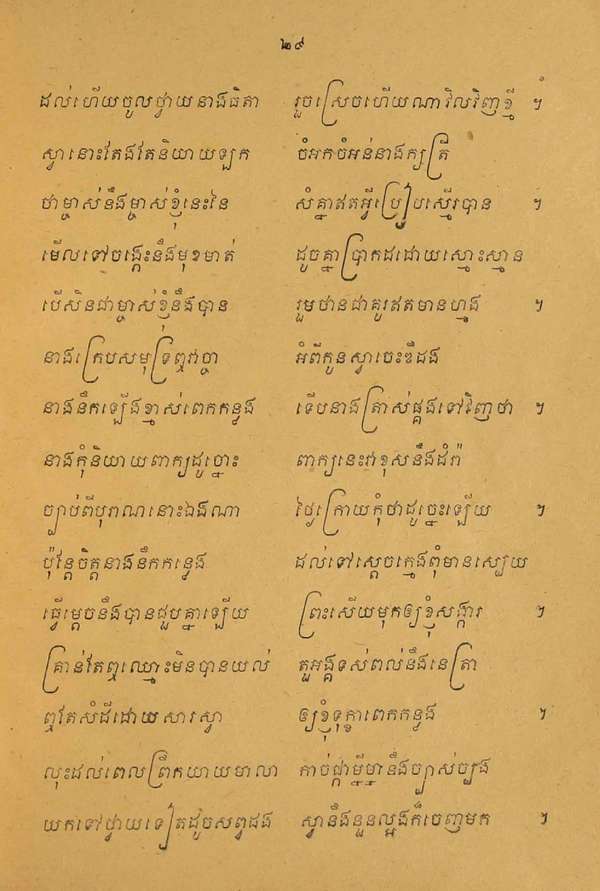 ២៩
ដល់ហើយចូលថ្វាយនាងធិតា រួចស្រេចហើយណាវិលវិញខ្មី ។
ស្វានោះតែងតែនិយាយឡូក ចំអកចំអន់នាងក្សត្រី
ថាម្ចាស់នឹងម្ចាស់ខ្ញុំនេះនៃ សំគ្នាឥតអ្វីប្រៀបស្មើរបាន ។
មើលទៅចង្កេះនឹងមុខមាត់ ដូចគ្នាប្រាកដដោយស្មោះស្មាន
បើសិនជាម្ចាស់ខ្ញុំនឹងបាន រួមឋានជាគូរឥតមានហ្មង ។
នាងក្រេបសមុទ្រឮវាថ្វា អំពីកូនស្វាចេះឌឺដង
នាងនឹកឡើងខ្មាស់ពេកកន្លង ទើបនាងត្រាស់ផ្គងទៅវិញថា ។
នាងកុំនិយាយពាក្យដូច្នោះ ពាក្យនេះវាខុសនឹងដំរ៉ា
ច្បាប់ពីបុរាណនោះឯងណា ថ្ងៃក្រោយកុំថាដូច្នេះឡើយ ។
ប៉ុន្តែចិត្តនាងនឹកកន្លេង ដល់ទៅស្តេចក្មេងពុំមានស្បើយ
ធ្វើម្តេចនឹងបានជួបគ្នាឡើយ ព្រះសើយមុកឲ្យខ្ញុំសង្ការ ។
គ្រាន់តែឮឈ្មោះមិនបានយល់ តួអង្គទស់ពល់នឹងនេត្រា
ឮតែសំដីដោយសារស្វា ឲ្យខ្ញុំទុក្ខាពេកកន្លង ។
លុះដល់ពេលព្រឹកយាយមាលា កាច់ផ្កាម្នីម្នានឹងច្បាស់ច្បង
យកទៅថ្វាយទៀតដូចសព្វដង ស្វានឹងនួនល្អងក៏ចេញមក ។